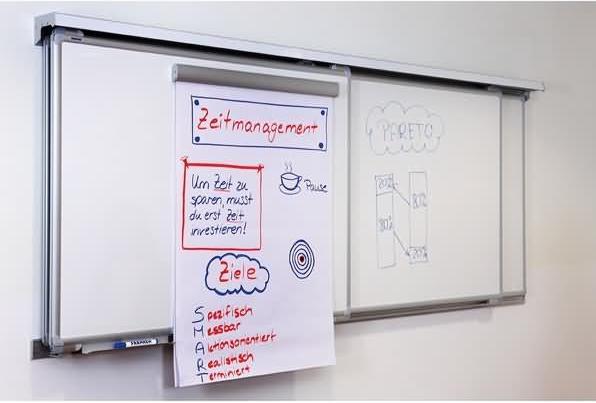 Zeitmanagement
Um Zeit zu
sparen, musst
du erst Zeit
investieren!
Pause
Ziele
Spezifisch
Messbar
Aktionsorientiert
Realistisch
Terminiert
PARETO
20%
80%
80%
20%